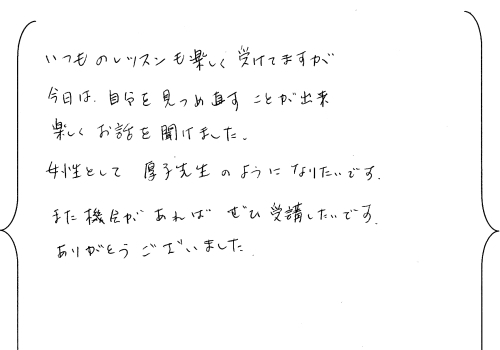 いつものレッスンも楽しく受けてますが
今日は、自分を見つめ直すことが出来
楽しくお話を聞けました。
女性として厚子先生のようになりたいです。
また機会があればぜひ受講したいです。
ありがとうございました。